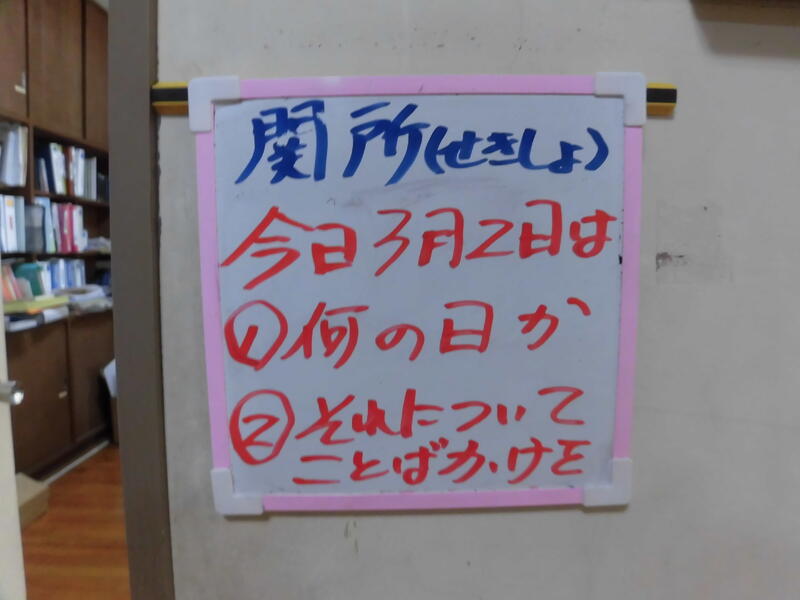 関所(せきしょ)
今日3月2日は
①何の日か
②それについて
ことばかけを